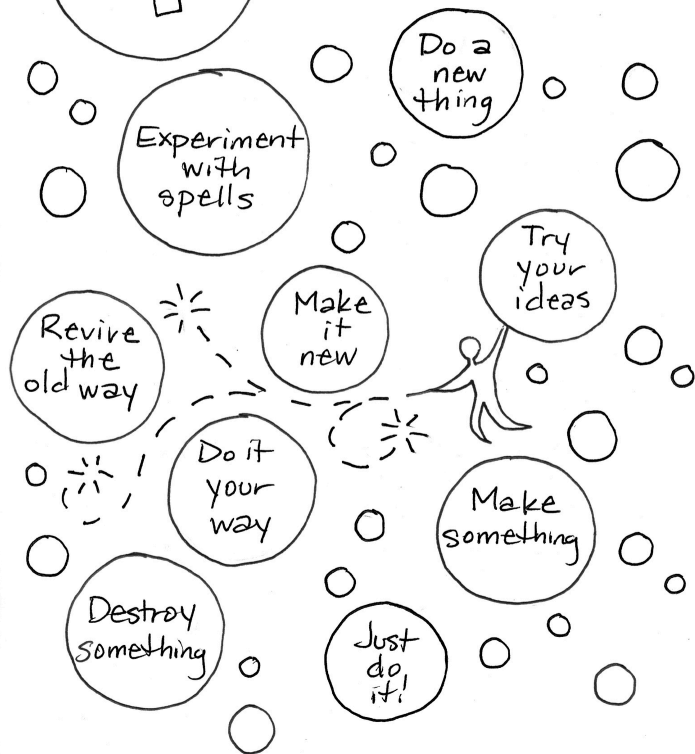 Do a
new
thing
Experiment
with
spells
Try
your
ideas
Make
it
new
Revive
the
old way
Do it
your
way
Make
something
Destroy
something
Just
do
it!